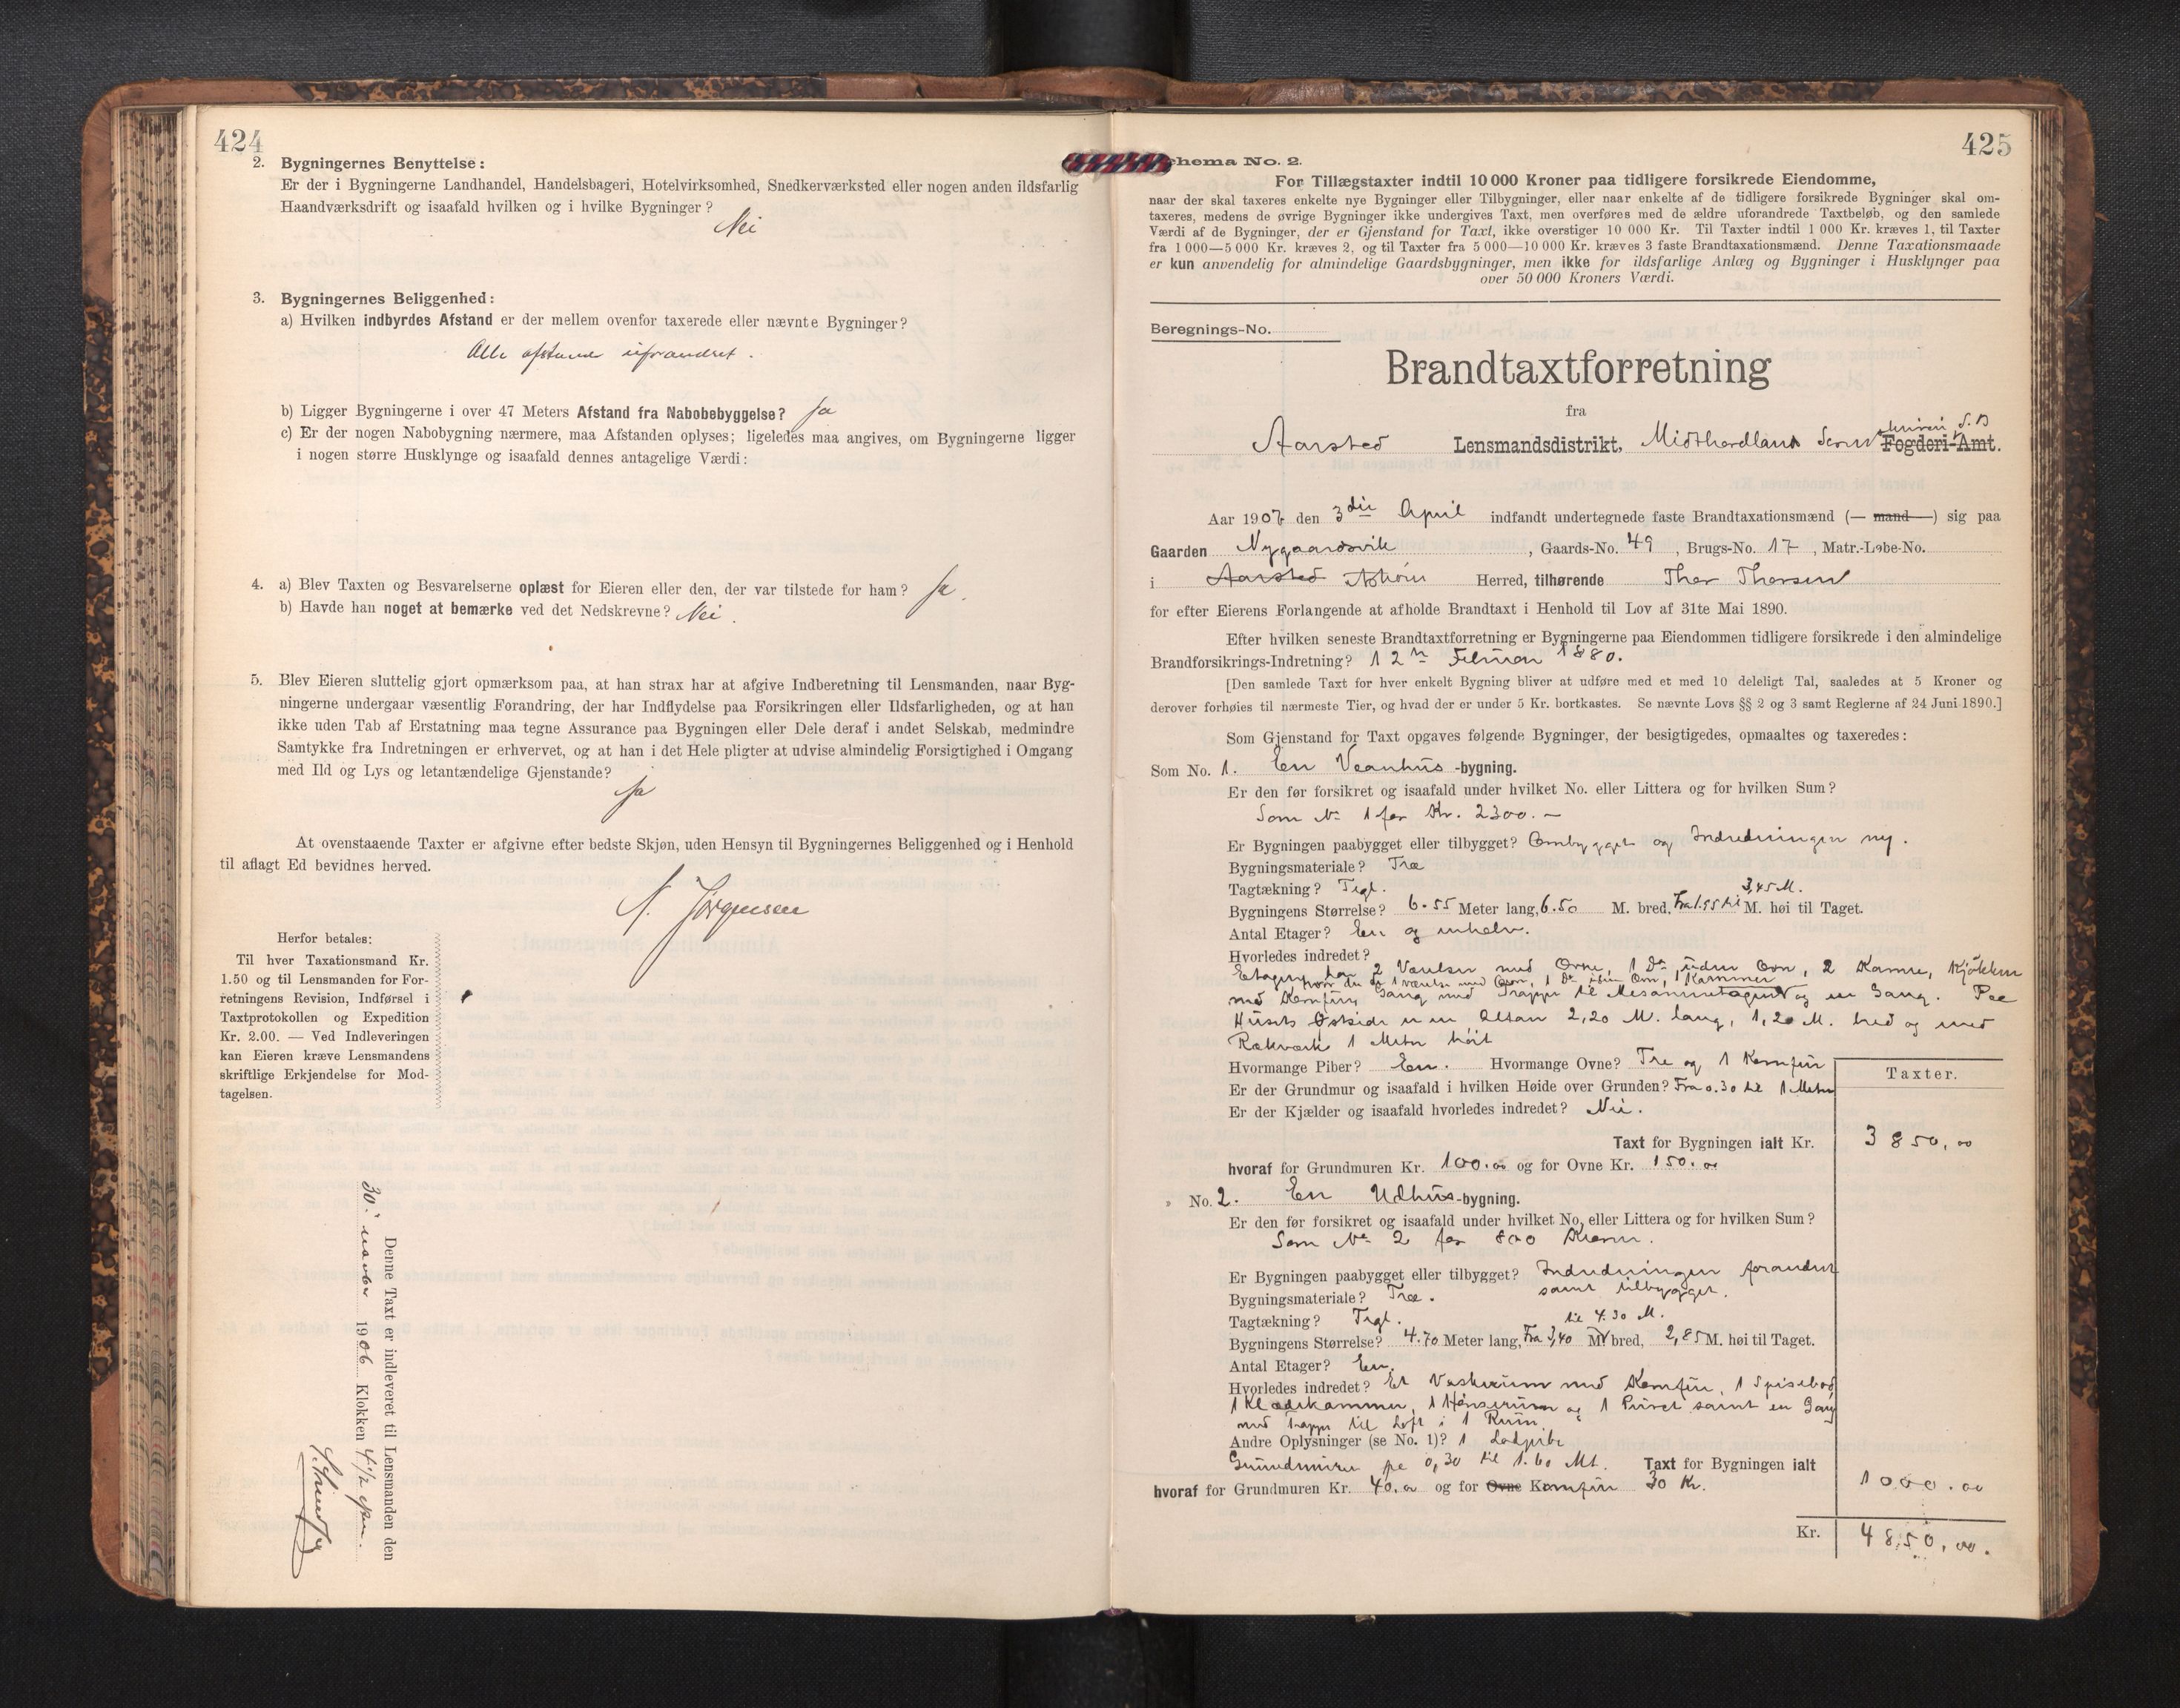 424
2. Bygningernes Benyttelse:
Er der i Bygningerne Landhandel, Handelsbageri, Hotelvirksomhed, Snedkerværksted eller nogen anden ildsfarlig
Haandværksdrift og isaafald hvilken og i hvilke Bygninger?
Nei
3. Bygningernes Beliggenhed:
a) Hvilken indbyrdes Afstand er der mellem ovenfor taxerede eller nævnte Bygninger?
Alle afstande uforandret.
b) Ligger Bygningerne i over 47 Meters Afstand fra Nabobebyggelse? Ja
c) Er der nogen Nabobygning nærmere, maa Afstanden oplyses; ligeledes maa angives, om Bygningerne ligger
i nogen større Husklynge og isaafald dennes antagelige Værdi:
4. a) Blev Taxten og Besvarelserne oplæst for Eieren eller den, der var tilstede for ham? Ja.
b) Havde han noget at bemærke ved det Nedskrevne? Nei.
5. Blev Eieren sluttelig gjort opmærksom paa, at han strax har at afgive Indberetning til Lensmanden, naar Byg-
ningerne undergaar væsentlig Forandring, der har Indflydelse paa Forsikringen eller Ildsfarligheden, og at han
ikke uden Tab af Erstatning maa tegne Assurance paa Bygningen eller Dele deraf i andet Selskab, medmindre
Samtykke fra Indretningen er erhvervet, og at han i det Hele pligter at udvise almindelig Forsigtighed i Omgang
med Ild og Lys og letantændelige Gjenstande?
Ja
At ovenstaaende Taxter er afgivne efter bedste Skjøn, uden Hensyn til Bygningernes Beliggenhed og i Henhold
til aflagt Ed bevidnes herved.
N. Jörgensen
Herfor betales:
Til hver Taxationsmand Kr.
1.50 og til Lensmanden for For-
retningens Revision, Indførsel i
Taxtprotokollen og Expedition
Kr. 2.00. — Ved Indleveringen
kan Eieren kræve Lensmandens
skriftlige Erkjendelse for Mod-
tagelsen.
Denne Taxt er indleveret til Lensmanden den
30. 1906 Klokken 4 1/2
425
hema No. 2.
For Tillægstaxter indtil 10 000 Kroner paa tidligere forsikrede Eiendomme,
naar der skal taxeres enkelte nye Bygninger eller Tilbygninger, eller naar enkelte af de tidligere forsikrede Bygninger skal om-
taxeres, medens de øvrige Bygninger ikke undergives Taxt, men overføres med de ældre uforandrede Taxtbeløb, og den samlede
Værdi af de Bygninger, der er Gjenstand for Taxt, ikke overstiger 10 000 Kr. Til Taxter indtil 1 000 Kr. kræves 1, til Taxter
fra 1 000—5 000 Kr. kræves 2, og til Taxter fra 5 000—10 000 Kr. kræves 3 faste Brandtaxationsmænd. Denne Taxationsmaade
er kun anvendelig for almindelige Gaardsbygninger, men ikke for ildsfarlige Anlæg og Bygninger i Husklynger paa
over 50 000 Kroners Værdi.
Beregnings-No.
Brandtaxtforretning
fra
Aarsted Lensmandsdistrikt, Midthordland Fogderi-Amt.
Aar 1907 den 3die April indfandt undertegnede faste Brandtaxationsmænd (— mand —) sig paa
Gaarden Nygaardsvik, Gaards-No. 49, Brugs-No. 17, Matr.-Løbe-No.
i Aarsted Askøen Herred, tilhørende Thor Thorsen
for efter Eierens Forlangende at afholde Brandtaxt i Henhold til Lov af 31te Mai 1890.
Efter hvilken seneste Brandtaxtforretning er Bygningerne paa Eiendommen tidligere forsikrede i den almindelige
Brandforsikrings-Indretning? 12te Februar 1880.
[Den samlede Taxt for hver enkelt Bygning bliver at udføre med et med 10 deleligt Tal, saaledes at 5 Kroner og
derover forhøies til nærmeste Tier, og hvad der er under 5 Kr. bortkastes. Se nævnte Lovs §§ 2 og 3 samt Reglerne af 24 Juni 1890.]
Som Gjenstand for Taxt opgaves følgende Bygninger, der besigtigedes, opmaaltes og taxeredes:
Som No. 1. En Vaanhus-bygning.
Er den før forsikret og isaafald under hvilket No. eller Littera og for hvilken Sum?
Som No 1 for Kr. 2300.—
Er Bygningen paabygget eller tilbygget? Ombygget og Indredningen ny.
Bygningsmateriale? Træ
Tagtækning? Tegl.
3,45 M.
Bygningens Størrelse? 6.55 Meter lang, 6.50 M. bred, Fra 1.95 til M. høi til Taget.
Antal Etager? En og enhalv.
Hvorledes indredet?
Etagen har 2 Værelser med Ovne, 1 Do uden Ovn, 2 Kamre, Kjøkken
hvor du er 1 værelse med Ovn, 1 Do uden Ovn, 1 Kammer
med Komfur, Gang med Trappe til Mesanineetagen og en Gang. Paa
Husets Østside er en Altan 2,20 M. lang, 1,20 M. bred og med
Rækværk 1 Meter høit
Hvormange Piber? En. Hvormange Ovne? Tre og 1 Komfur
Er der Grundmur og isaafald i hvilken Høide over Grunden? Fra 0.30 til 1 Meter
Er der Kjælder og isaafald hvorledes indredet? Nei.
Taxter.
Taxt for Bygningen ialt Kr. 3850,00
hvoraf for Grundmuren Kr. 100.00 og for Ovne Kr. 150.00
" No. 2. En Udhus-bygning.
Er den før forsikret og isaafald under hvilket No. eller Littera og for hvilken Sum?
Som No 2 for 800 Kroner.
Er Bygningen paabygget eller tilbygget? Indredningen forandret
samt tilbygget.
Bygningsmateriale? Træ.
Tagtækning? Tegl.
til 4.30 M.
Bygningens Størrelse? 4.70 Meter lang, Fra 3,40 M. bred, 2,85 M. høi til Taget.
Antal Etager? En.
Hvorledes indredet? Et Vaskerum med Komfur, 1 Spisebod
1 Klædekammer, 1 Hønserum og 1 Privet samt en Gang
med Trappe til Loft i 1 Rum
Andre Oplysninger (se No. 1)? 1 Ladpibe
Grundmuren pe 0,30 til 1.60 Mt. Taxt for Bygningen ialt
hvoraf for Grundmuren Kr. 40.00 og for Ovne Komfur 30 Kr. 1000.00
Kr. 4850,00.